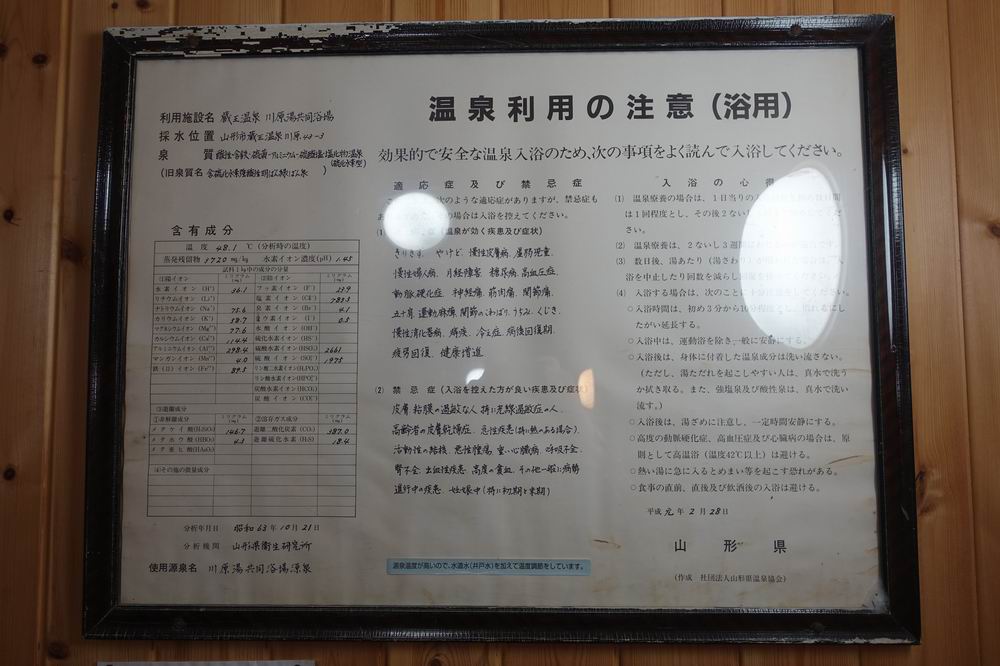 温泉利用の注意(浴用)
利用施設名 蔵王温泉 川原湯共同浴場
採水位置 山形市蔵王温泉川原43-3
泉質 酸性・含鉄・硫黄-アルミニウム-硫酸塩・塩化物温泉
(硫化水素型)
(旧泉質名 含硫化水素酸性明ばん緑ばん泉)
効果的で安全な温泉入浴のため、次の事項をよく読んで入浴してください。
含有成分
温度 48.1 ℃ (分析時の温度)
蒸発残留物 3720 mg/kg 水素イオン濃度(pH) 1.45
試料1kg中の成分の分量
(1)陽イオン ミリグラム(mg) (2)陰イオン ミリグラム(mg)
水素イオン(H⁺) 36.1 フッ素イオン(F⁻) 13.9
リチウムイオン(Li⁺) 塩素イオン(Cl⁻) 783.3
ナトリウムイオン(Na⁺) 75.6 臭素イオン(Br⁻) 4.1
カリウムイオン(K⁺) 38.7 ヨウ素イオン(I⁻) 0.5
マグネシウムイオン(Mg²⁺) 77.6 水酸イオン(OH⁻)
カルシウムイオン(Ca²⁺) 114.4 硫酸水素イオン(HSO₄⁻) 2661
アルミニウムイオン(Al³⁺) 298.4 硫酸イオン(SO₄²⁻) 1975
マンガンイオン(Mn²⁺) 4.0 リン酸二水素イオン(H₂PO₄⁻)
鉄(II)イオン(Fe²⁺) 89.5 リン酸水素イオン(HPO₄²⁻)
炭酸水素イオン(HCO₃⁻)
炭酸イオン(CO₃²⁻)
(3)遊離成分
①非解離成分 ミリグラム(mg) ②溶存ガス成分 ミリグラム(mg)
メタケイ酸(H₂SiO₃) 146.7 遊離二酸化炭素(CO₂) 387.0
メタホウ酸(HBO₂) 4.3 遊離硫化水素(H₂S) 18.4
メタ亜ヒ酸(HAsO₂)
(4)その他の微量成分
分析年月日 昭和63年10月21日
分析機関 山形県衛生研究所
使用源泉名 川原湯共同浴場源泉
適応症及び禁忌症
次のような適応症がありますが、禁忌症も
の場合は入浴を控えてください。
(1) 症(温泉が効く疾患及び症状)
きりきず、やけど、慢性皮膚病、虚弱児童、
慢性婦人病、月経障害、糖尿病、高血圧症、
動脈硬化症、神経痛、筋肉痛、関節痛、
五十肩、運動麻痺、関節のこわばり、うちみ、くじき、
慢性消化器病、痔疾、冷え症、病後回復期、
疲労回復、健康増進
(2) 禁忌症(入浴を控えた方が良い疾患及び症状)
皮膚・粘膜の過敏な人、特に光線過敏症の人、
高齢者の皮膚乾燥症、急性疾患(特に熱のある場合)、
活動性の結核、悪性腫瘍、重い心臓病、呼吸不全、
腎不全、出血性疾患、高度の貧血、その他一般に病勢
進行中の疾患、妊娠中(特に初期と末期)
源泉温度が高いので、水道水(井戸水)を加えて温度調節をしています。
入浴の心得
(1) 温泉療養の場合は、1日当りの 数日間
は1回程度とし、その後2ない
い。
(2) 温泉療養は、2ないし3週間
(3) 数日後、湯あたり(湯さわり)
を中止したり回数を減らし
(4) 入浴する場合は、次のことに
○入浴時間は、初め3分から10分程度とし、慣れるにし
たがい延長する。
○入浴中は、運動浴を除き一般に安静にする。
○入浴後は、身体に付着した温泉成分は洗い流さない。
(ただし、湯ただれを起こしやすい人は、真水で洗う
か拭き取る。また、強塩泉及び酸性泉は、真水で洗い
流す。)
○入浴後は、湯ざめに注意し、一定時間安静にする。
○高度の動脈硬化症、高血圧症及び心臓病の場合は、原
則として高温浴(温度42℃以上)は避ける。
○熱い湯に急に入るとめまい等を起こす恐れがある。
○食事の直前、直後及び飲酒後の入浴は避ける。
平成元年2月28日
山形県
(作成 社団法人山形県温泉協会)